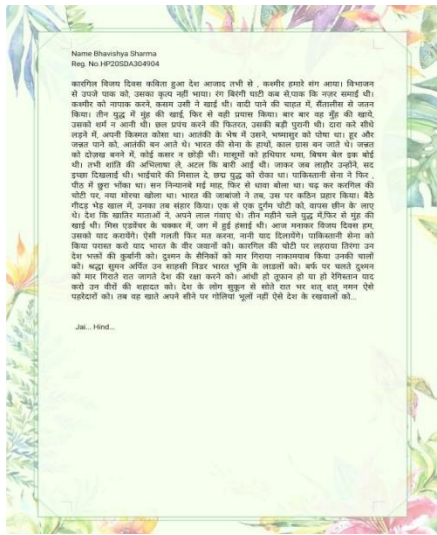 Name Bhavishya Sharma
Reg. No.HP20SDA304904
कारगिल विजय दिवस कविता हुआ देश आजाद तभी से , कश्मीर हमारे संग आया। विभाजन
से उपजे पाक को, उसका कृत्य नहीं भाया। रंग बिरंगी घाटी कब से,पाक कि नज़र समाई थी।
कश्मीर को नापाक करने, कसम उसी ने खाई थी। वादी पाने की चाहत में, सैंतालीस से जतन
किया। तीन युद्ध में मुंह की खाई, फिर से वही प्रयास किया। बार बार वह मुँह की खाये,
उसको शर्म न आनी थी। छल प्रपंच करने की फितरत, उसकी बड़ी पुरानी थी। दारा करे सीधे
लड़ने में, अपनी किस्मत कोसा था। आतंकी के भेष में उसने, भष्मासुर को पोषा था। हूर और
जन्नत पाने को, आतंकी बन आते थे। भारत की सेना के हाथों, काल ग्रास बन जाते थे। जन्नत
को दोज़ख बनने में, कोई कसर न छोड़ी थी। मासूमों को हथियार थमा, बिषम बेल इक बोई
थी। तभी शांति की अभिलाषा ले, अटल कि बारी आई थी। जाकर जब लाहौर उन्होंने, सद
इच्छा दिखलाई थी। भाईचारे की मिसाल दे, छद्म युद्ध को रोका था। पाकिस्तानी सेना ने फिर ,
पीठ में छुरा भोंका था। सन निन्यानबे मई माह, फिर से धावा बोला था। चढ़ कर करगिल की
चोटी पर, नया मोरचा खोला था। भारत की जाबांजो ने तब, उस पर कठिन प्रहार किया। बैठे
गीदड़ भेड़ खाल में, उनका तब संहार किया। एक से एक दुर्गम चोटी को, वापस छीन के लाए
थे। देश कि खातिर माताओं ने, अपने लाल गंवाए थे। तीन महीने चले युद्ध में,फिर से मुंह की
खाई थी। मिस एडवेंचर के चक्कर में, जग में हुई हंसाई थी। आज मनाकर विजय दिवस हम,
उसको याद करायेंगे। ऐसी गलती फिर मत करना, नानी याद दिलायेंगे। पाकिस्तानी सेना को
किया परास्त करो याद भारत के वीर जवानों को। कारगिल की चोटी पर लहराया तिरंगा उन
देश भक्तों की कुर्बानी को। दुश्मन के सैनिकों को मार गिराया नाकामयाब किया उनकी चालों
को। श्रद्धा सुमन अर्पित उन साहसी निडर भारत भूमि के लाडलों को। बर्फ पर चलते दुश्मन
को मार गिराते रात जागते देश की रक्षा करने को। आंधी हो तूफान हो या हो रेगिस्तान याद
करो उन वीरों की शहादत को। देश के लोग सुकून से सोते रात भर शत् शत् नमन ऐसे
पहरेदारों को। तब वह खाते अपने सीने पर गोलियां भूलों नहीं ऐसे देश के रखवालों को...
Jai... Hind...